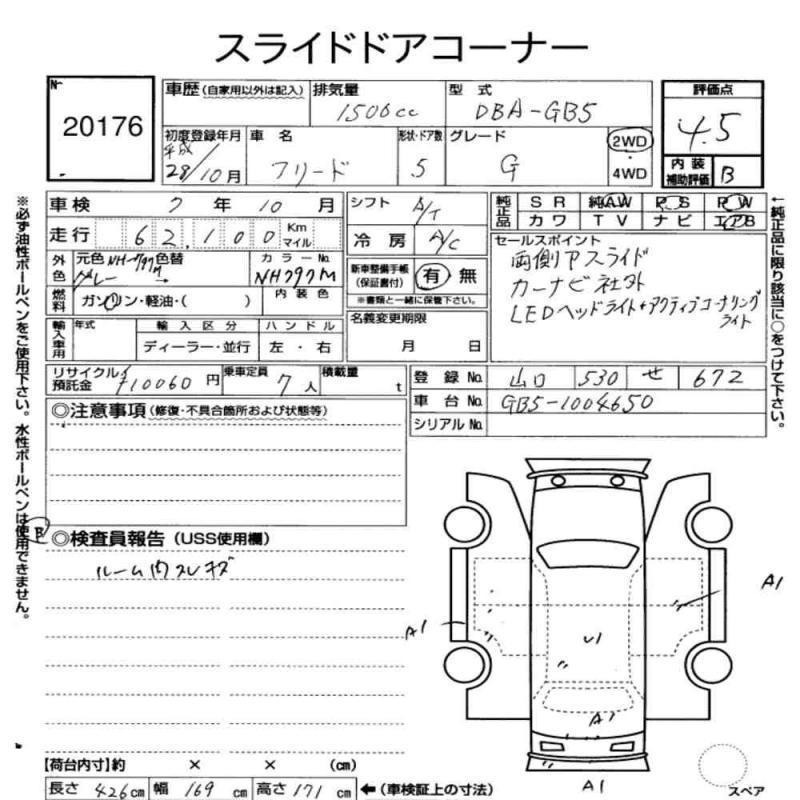 スライドドアコーナー
№
20176
車歴 (自家用以外は記入)
排気量
1500cc
型式
DBA-GB5
評価点
4.5
初度登録年月
平成
28/10月
車名
フリード
形状・ドア数
5
グレード
G
2WD
4WD
内装
補助評価
B
車検 7年 10月
シフト A/T
純正品
SR 純AW PS PW
カワ TV ナビ エアB
走行 62,100 Km マイル
冷房 A/C
セールスポイント
両側Pスライド
カーナビ社外
LEDヘッドライト+アクティブコーナリング
ライト
外色
元色 NH-797M 色替
グレー
カラーNo.
NH797M
新車整備手帳
(保証書付)
有 無
※書類と一緒に保管下さい。
燃料
ガソリン・軽油・( )
内装色
名義変更期限
月 日
輸入車用
年式
輸入区分
ハンドル
ディーラー・並行
左・右
リサイクル
預託金
¥10060円
乗車定員
7人
積載量
t
登録No. 山口 530 せ 672
車台No. GB5-1004650
シリアルNo.
◎注意事項 (修復・不具合箇所および状態等)
B
◎検査員報告 (USS使用欄)
ルーム内スレキズ
A1
A1
U1
A1
A1
スペア
【荷台内寸】約 × × (cm)
長さ 426cm 幅 169cm 高さ 171cm
←(車検証上の寸法)
※必ず油性ボールペンをご使用下さい。水性ボールペンは使用できません。
←純正品に限り該当に○をつけて下さい。